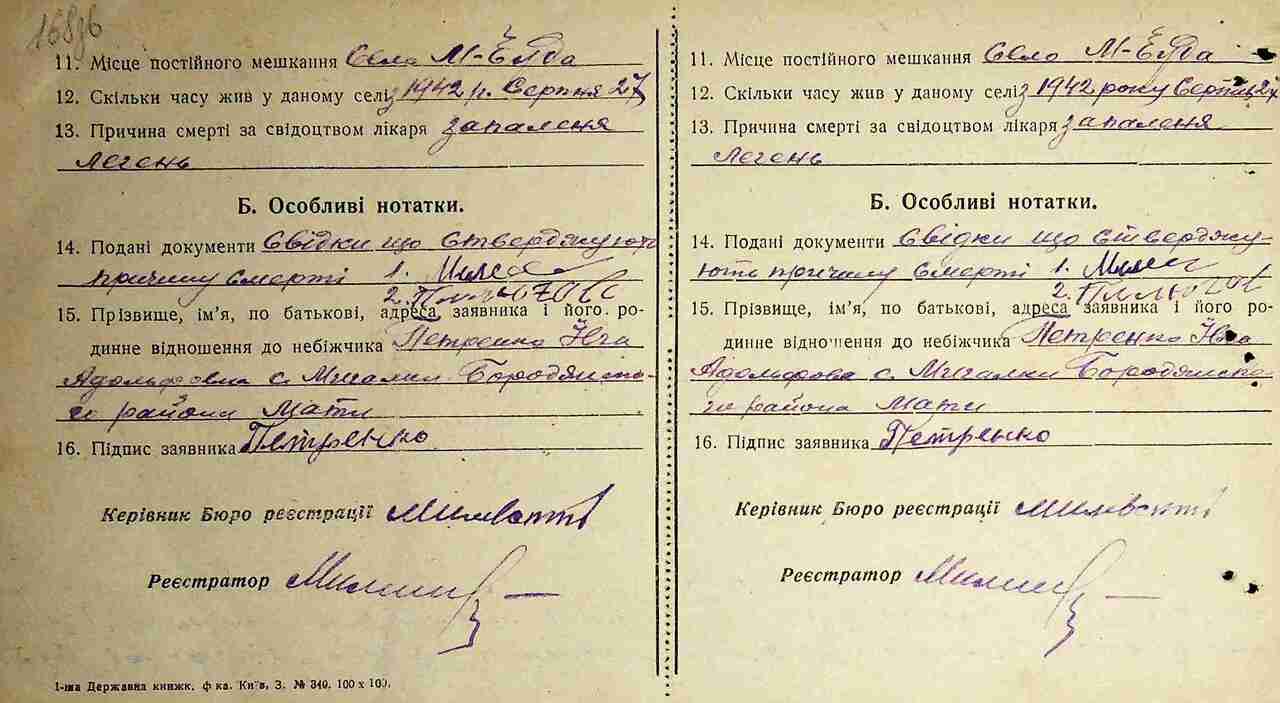 168зв
11. Місце постійного мешкання Село М-Буда
12. Скільки часу жив у даному селі з 1942 р. Серпня 27
13. Причина смерті за свідоцтвом лікаря запаленя
легень
Б. Особливі нотатки.
14. Подані документи Свідки що стверджують
причину смерті 1.
2.
15. Прізвище, ім'я, по батькові, адреса заявника і його ро-
динне відношення до небіжчика Петренко
Адольфовна с. Мигалки Бородянсько-
го района Мати
16. Підпис заявника Петренко
Керівник Бюро реєстрації
Реєстратор
1-ша Державна книжк. ф-ка. Київ, З. № 340. 100 x 100.
11. Місце постійного мешкання Село М-Буда
12. Скільки часу жив у даному селі з 1942 року Серпня 27
13. Причина смерті за свідоцтвом лікаря запаленя
легень
Б. Особливі нотатки.
14. Подані документи Свідки що стверджу-
ють причину смерті 1.
2.
15. Прізвище, ім'я, по батькові, адреса заявника і його ро-
динне відношення до небіжчика Петренко
Адольфова с. Мигалки Бородянсько-
го района Мати
16. Підпис заявника Петренко
Керівник Бюро реєстрації
Реєстратор